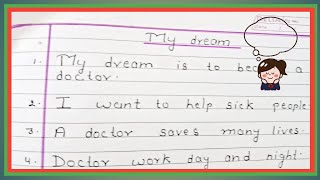 My dream
1. My dream is to be a
doctor.
2. I want to help sick people
3. A doctor saves many lives.
4. Doctor work day and night.